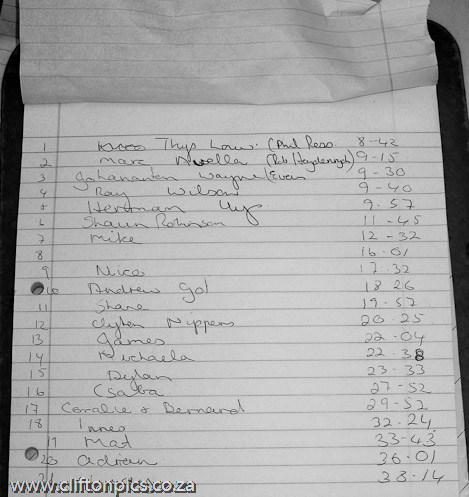 1 Thys Louw (Paul Ross 8-42
2 Marc Avella (Rob 9-15
3 Wayne/Evan 9-30
4 Ray Wilson 9-40
Herman 9.57
6 Shaun Rohnson 11-45
7 Mike 12-32
8 16.01
9 Nico 17.32
10 Andrew Gol 18 26
11 Shane 19-57
12 Clyton Nippers 20-25
13 James 22.04
14 Michaela 22.38
15 Dylan 23-33
16 Csaba 27-52
17 Coralie & Bernard 29-52
18 Innes 32.24
19 Mat 33-43
20 Adrian 36.01
21 38-14
www.cliftonpics.co.za